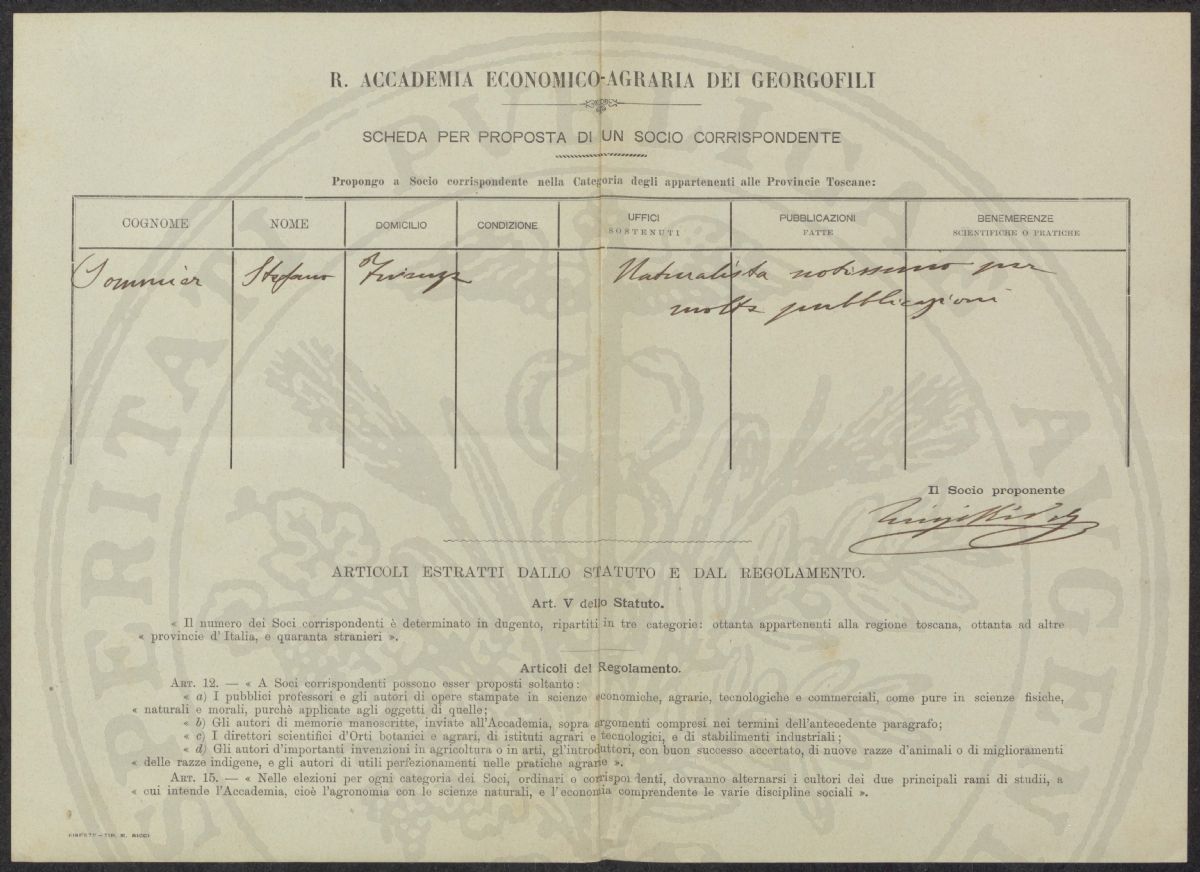 R. ACCADEMIA ECONOMICO-AGRARIA DEI GEORGOFILI
SCHEDA PER PROPOSTA DI UN SOCIO CORRISPONDENTE
Propongo a Socio corrispondente nella Categoria degli appartenenti alle Provincie Toscane:
COGNOME NOME DOMICILIO CONDIZIONE UFFICI SOSTENUTI PUBBLICAZIONI FATTE BENEMERENZE SCIENTIFICHE O PRATICHE
Sommier Stefano Firenze Naturalista notissimo per
molte pubblicazioni
Il Socio proponente
Luigi Ridolfi
ARTICOLI ESTRATTI DALLO STATUTO E DAL REGOLAMENTO.
Art. V dello Statuto.
« Il numero dei Soci corrispondenti è determinato in dugento, ripartiti in tre categorie: ottanta appartenenti alla regione toscana, ottanta ad altre
« provincie d'Italia, e quaranta stranieri ».
Articoli del Regolamento.
ART. 12. — « A Soci corrispondenti possono esser proposti soltanto:
« a) I pubblici professori e gli autori di opere stampate in scienze economiche, agrarie, tecnologiche e commerciali, come pure in scienze fisiche,
« naturali e morali, purchè applicate agli oggetti di quelle;
« b) Gli autori di memorie manoscritte, inviate all'Accademia, sopra argomenti compresi nei termini dell'antecedente paragrafo;
« c) I direttori scientifici d'Orti botanici e agrari, di istituti agrari e tecnologici, e di stabilimenti industriali;
« d) Gli autori d'importanti invenzioni in agricoltura o in arti, gl'introduttori, con buon successo accertato, di nuove razze d'animali o di miglioramenti
« delle razze indigene, e gli autori di utili perfezionamenti nelle pratiche agrarie ».
ART. 15. — « Nelle elezioni per ogni categoria dei Soci, ordinari o corrispondenti, dovranno alternarsi i cultori dei due principali rami di studii, a
« cui intende l'Accademia, cioè l'agronomia con le scienze naturali, e l'economia comprendente le varie discipline sociali ».
FIRENZE — TIP. M. RICCI